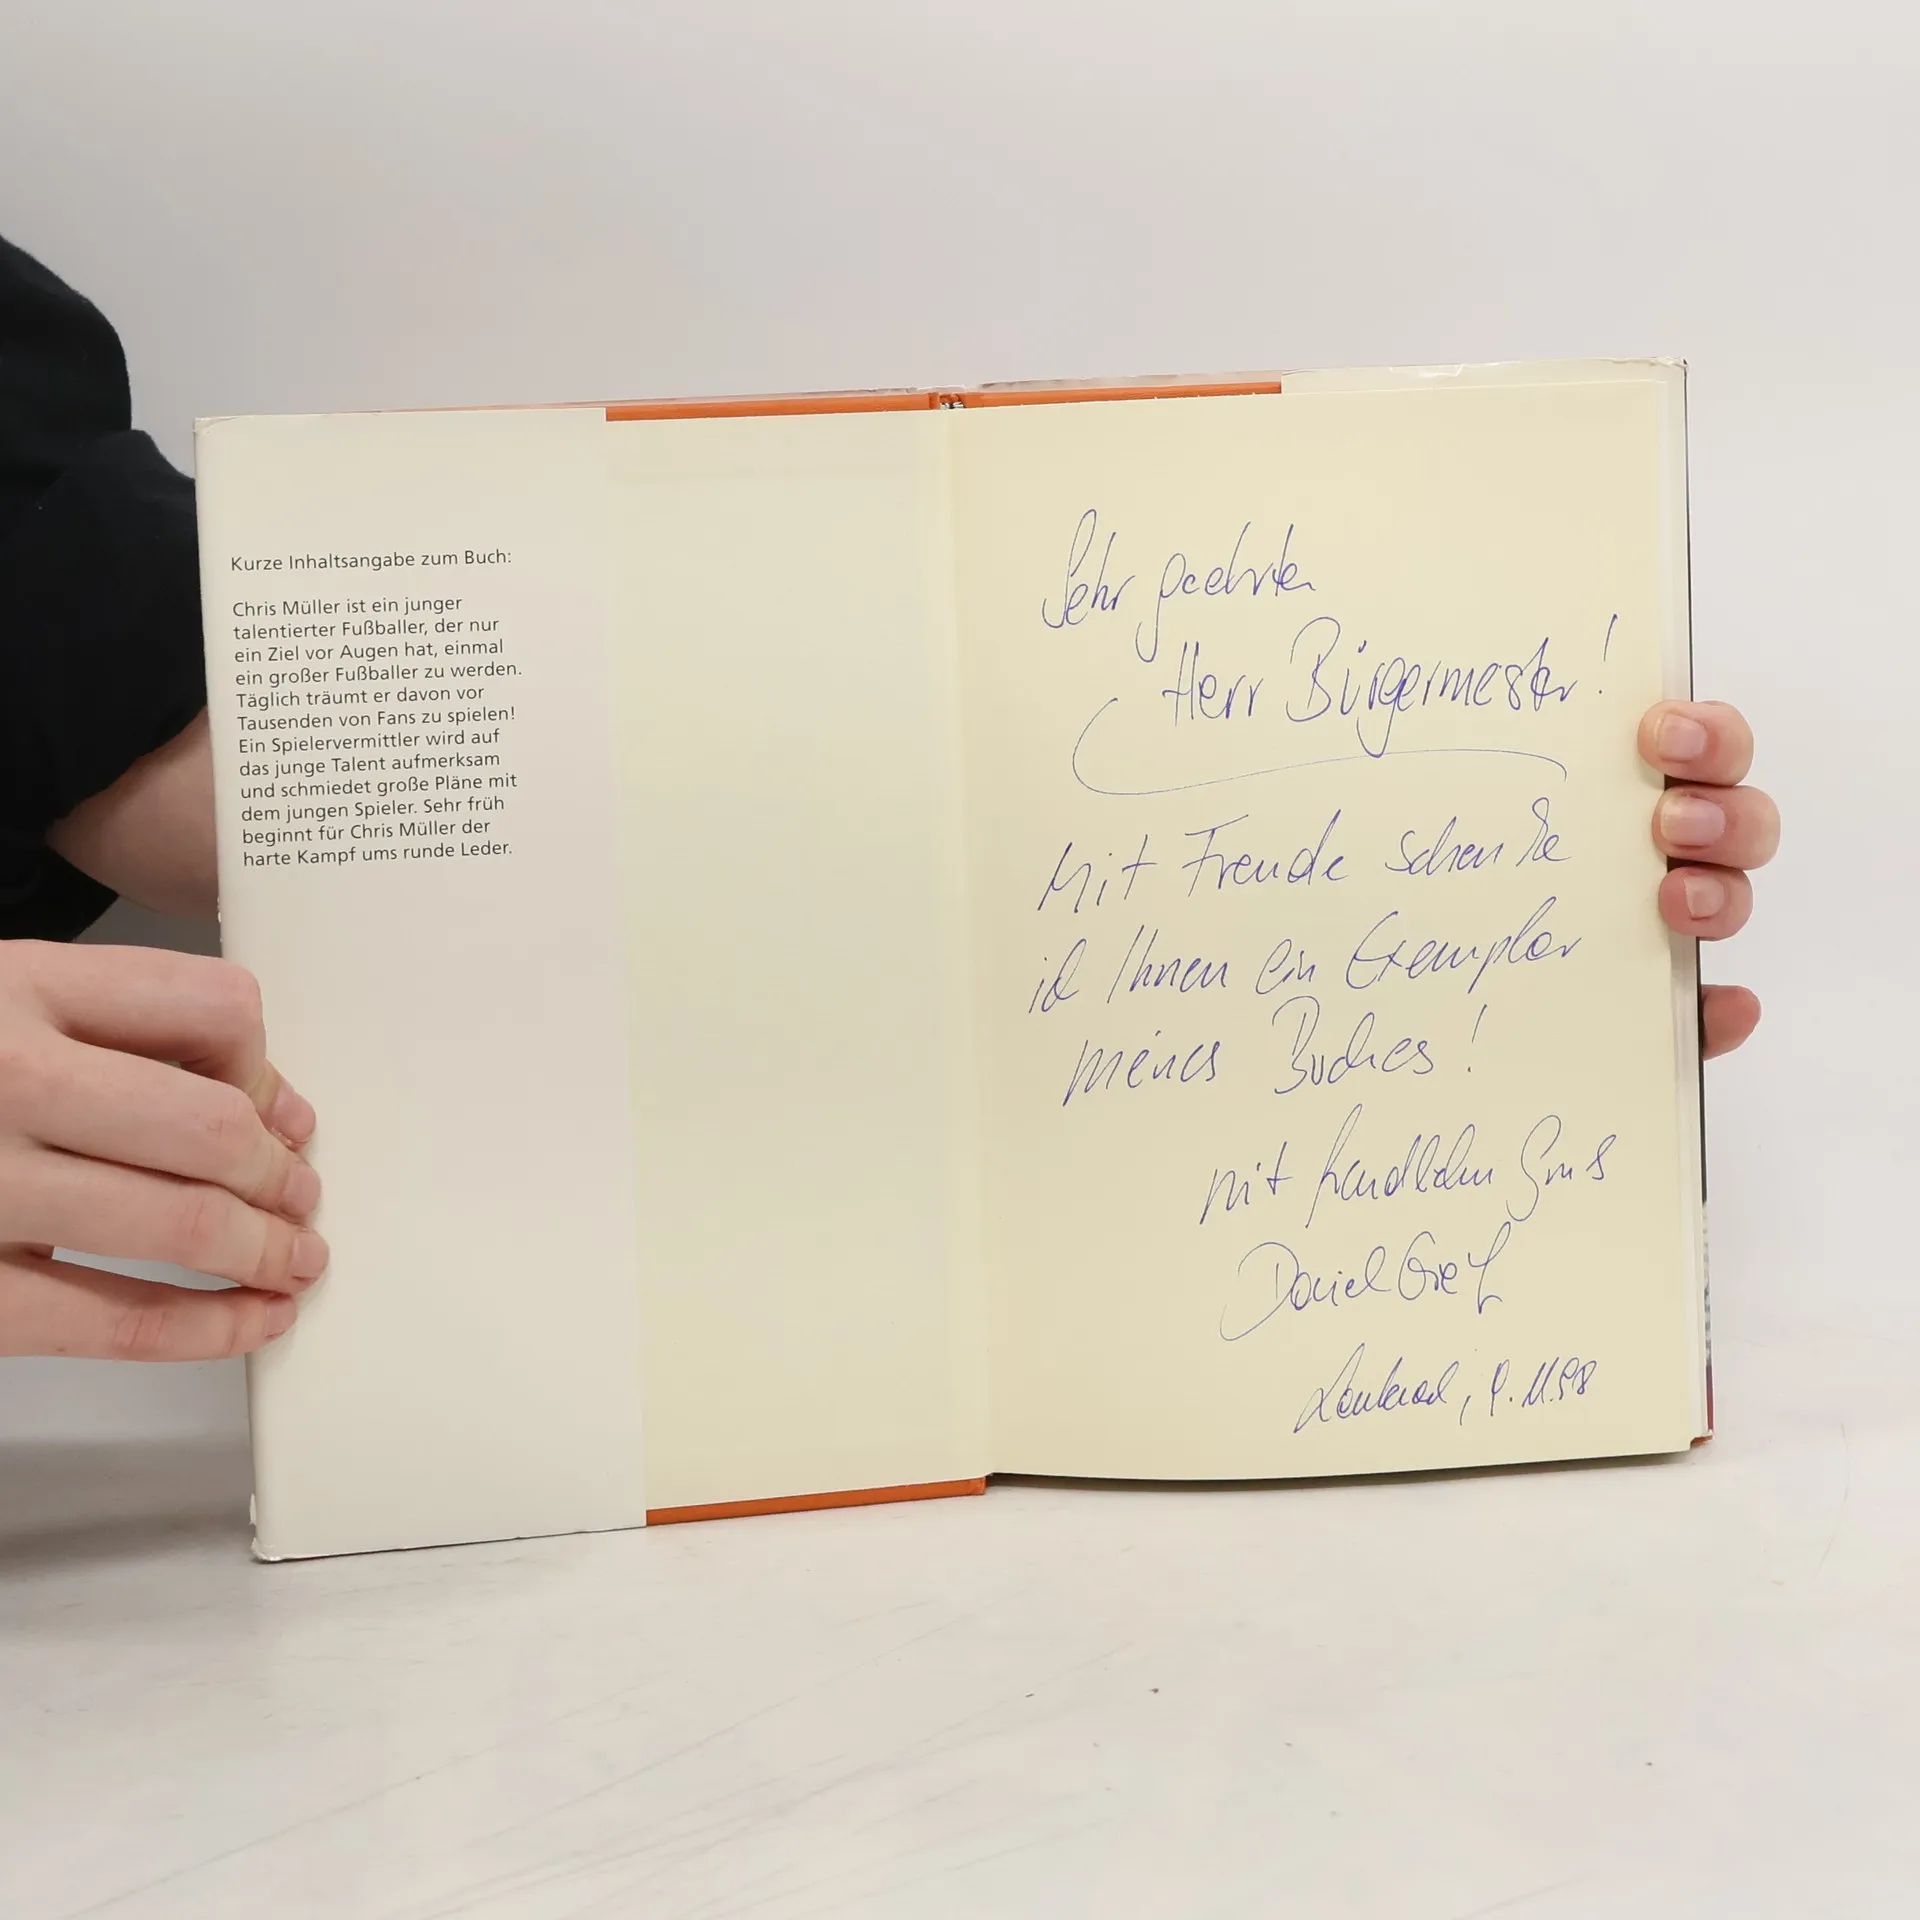 Kurze Inhaltsangabe zum Buch:
Chris Müller ist ein junger
talentierter Fußballer, der nur
ein Ziel vor Augen hat, einmal
ein großer Fußballer zu werden.
Täglich träumt er davon vor
Tausenden von Fans zu spielen!
Ein Spielervermittler wird auf
das junge Talent aufmerksam
und schmiedet große Pläne mit
dem jungen Spieler. Sehr früh
beginnt für Chris Müller der
harte Kampf ums runde Leder.
Sehr geehrter
Herr Bürgermeister!
Mit Freude schenke
ich Ihnen ein Exemplar
meines Buches!
mit freundlichem Gruß
Daniel